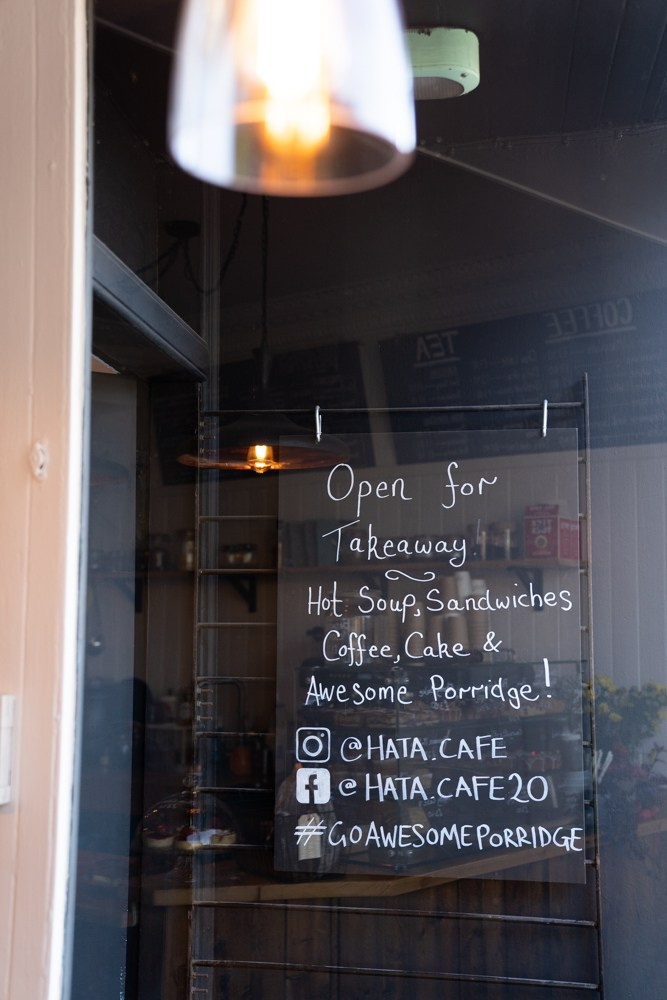 COFFEE
TEA
Open for
Takeaway.
Hot Soup, Sandwiches
Coffee, Cake &
Awesome Porridge!
@HATA.CAFE
@HATA.CAFE20
#GOAWESOMEPORRIDGE